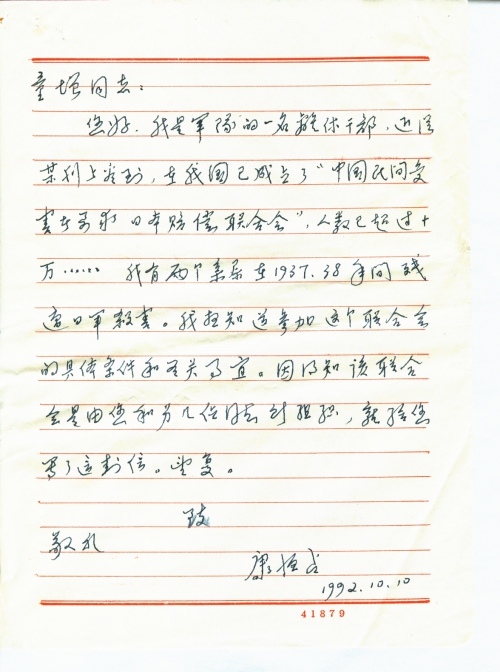 童增同志：
您好，我是军队的一名离休干部，近从
某刊上看到，在我国已成立了“中国民间受
害者要求日本赔偿联合会”，人数已超过十
万…… 我有两个亲属在1937.38年间残
遭日军杀害。我想知道参加这个联合会
的具体条件和有关事宜。因得知该联合
会是由您和另几位同志组织，就给您
写了这封信。望复。
致
敬礼
康恒
1992.10.10
41879